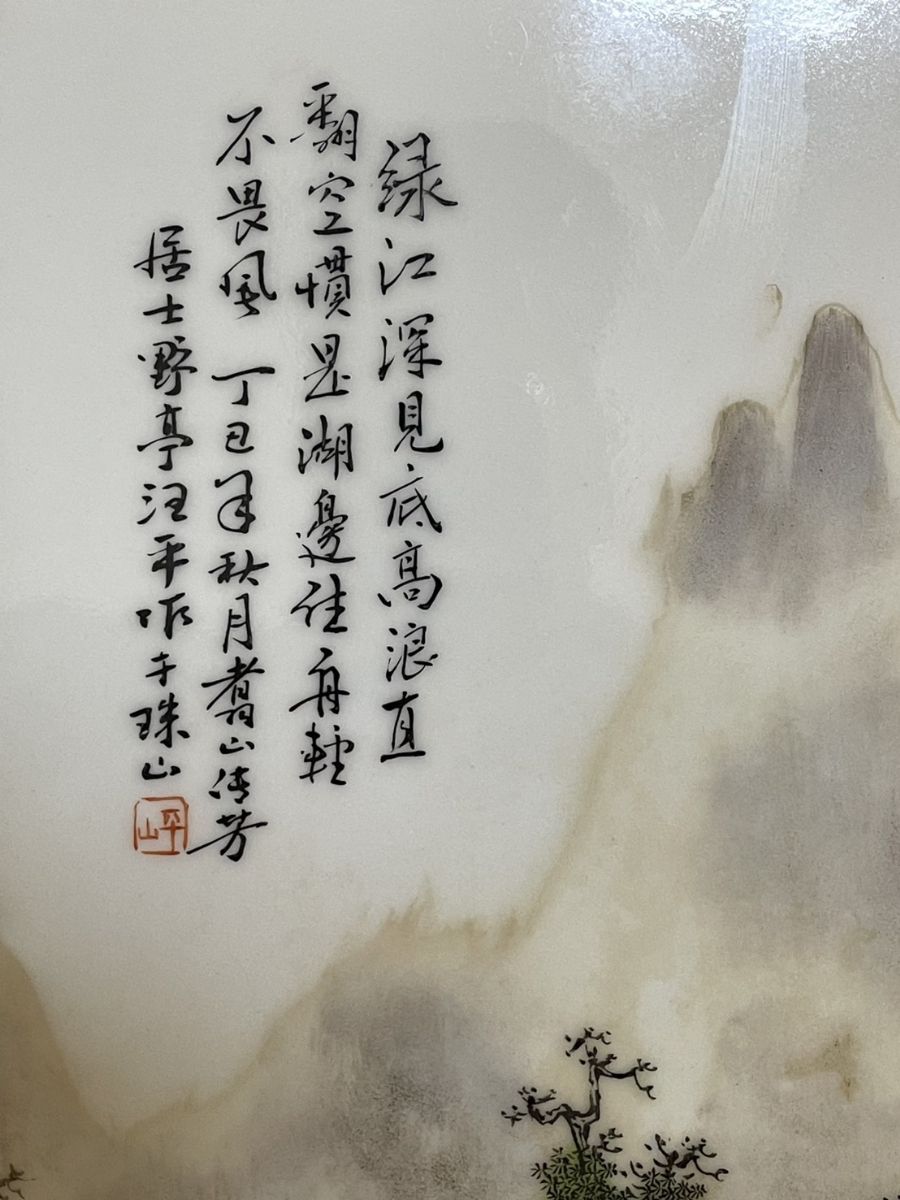 绿江深見底高浪直
翻空慣是湖邊住舟輕
不畏風 丁丑年秋月翥山传芳
居士野亭汪平作于珠山
平山